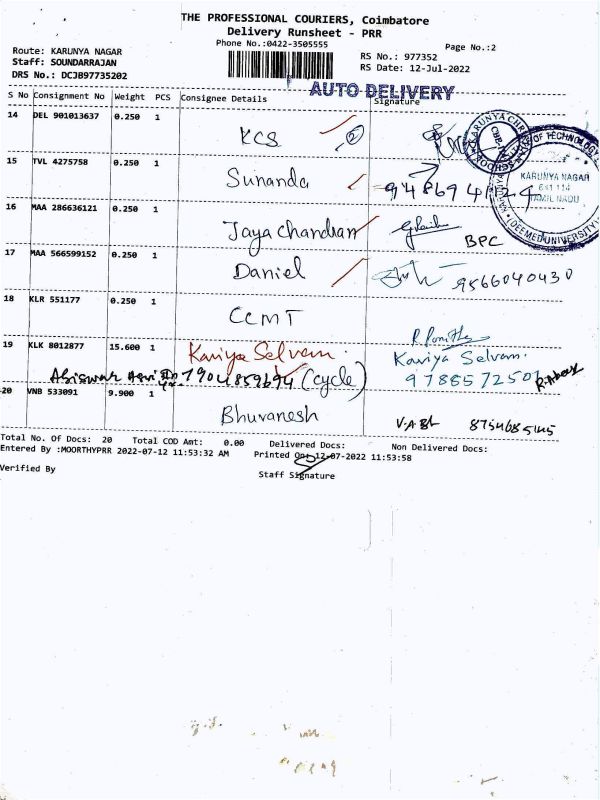 THE PROFESSIONAL COURIERS, Coimbatore
Delivery Runsheet - PRR
Phone No.:0422-3505555
Page No.:2
Route: KARUNYA NAGAR
Staff: SOUNDARRAJAN
DRS No.: DCJB97735202
RS No.: 977352
RS Date: 12-Jul-2022
AUTO DELIVERY
S No Consignment No Weight PCS Consignee Details Signature
14 DEL 901013637 0.250 1 KCS 2
15 TVL 4275758 0.250 1 Sunanda
16 MAA 286636121 0.250 1 Jayachandran BPC
17 MAA 566599152 0.250 1 Daniel 9566040430
18 KLR 551177 0.250 1 CCMT
19 KLK 8012877 15.600 1 Kaviya Selvam. Kaviya Selvam.
(cycle)
20 VNB 533091 9.900 1 Bhuvanesh
KARUNYA NAGAR
641 114
TAMIL NADU
(DEEMED UNIVERSITY)
OF TECHNOLOGY
Total No. Of Docs: 20 Total COD Amt: 0.00 Delivered Docs: Non Delivered Docs:
Entered By :MOORTHYPRR 2022-07-12 11:53:32 AM Printed On: 12-07-2022 11:53:58
Verified By
Staff Signature